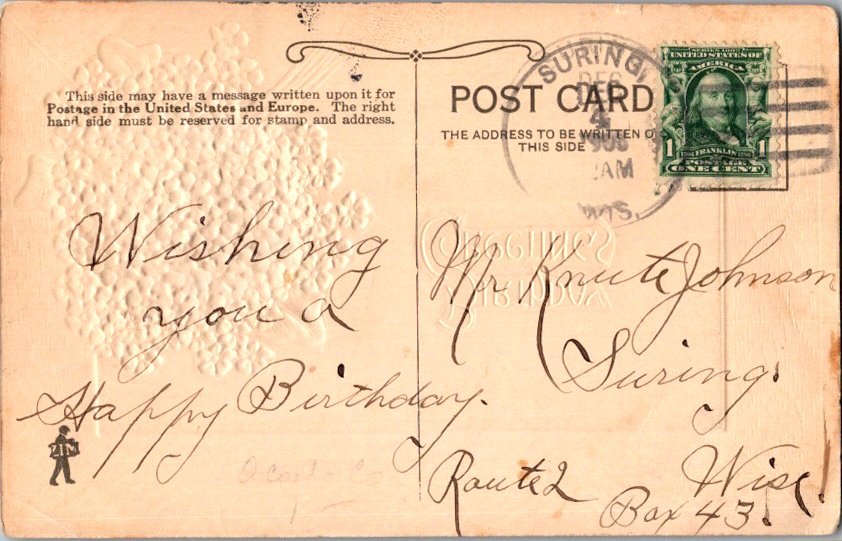 This side may have a message written upon it for
Postage in the United States and Europe. The right
hand side must be reserved for stamp and address.
POST CARD
THE ADDRESS TO BE WRITTEN O
THIS SIDE
SURING,
DEC
4
AM
WIS.
SERIES 1902
UNITED STATES OF
AMERICA
FRANKLIN
1 POSTAGE 1
ONE CENT
Greetings
Birthday
Wishing
you a
Happy Birthday.
Mr Knute Johnson
Suring.
Route 2 Wisc.
Box 43.